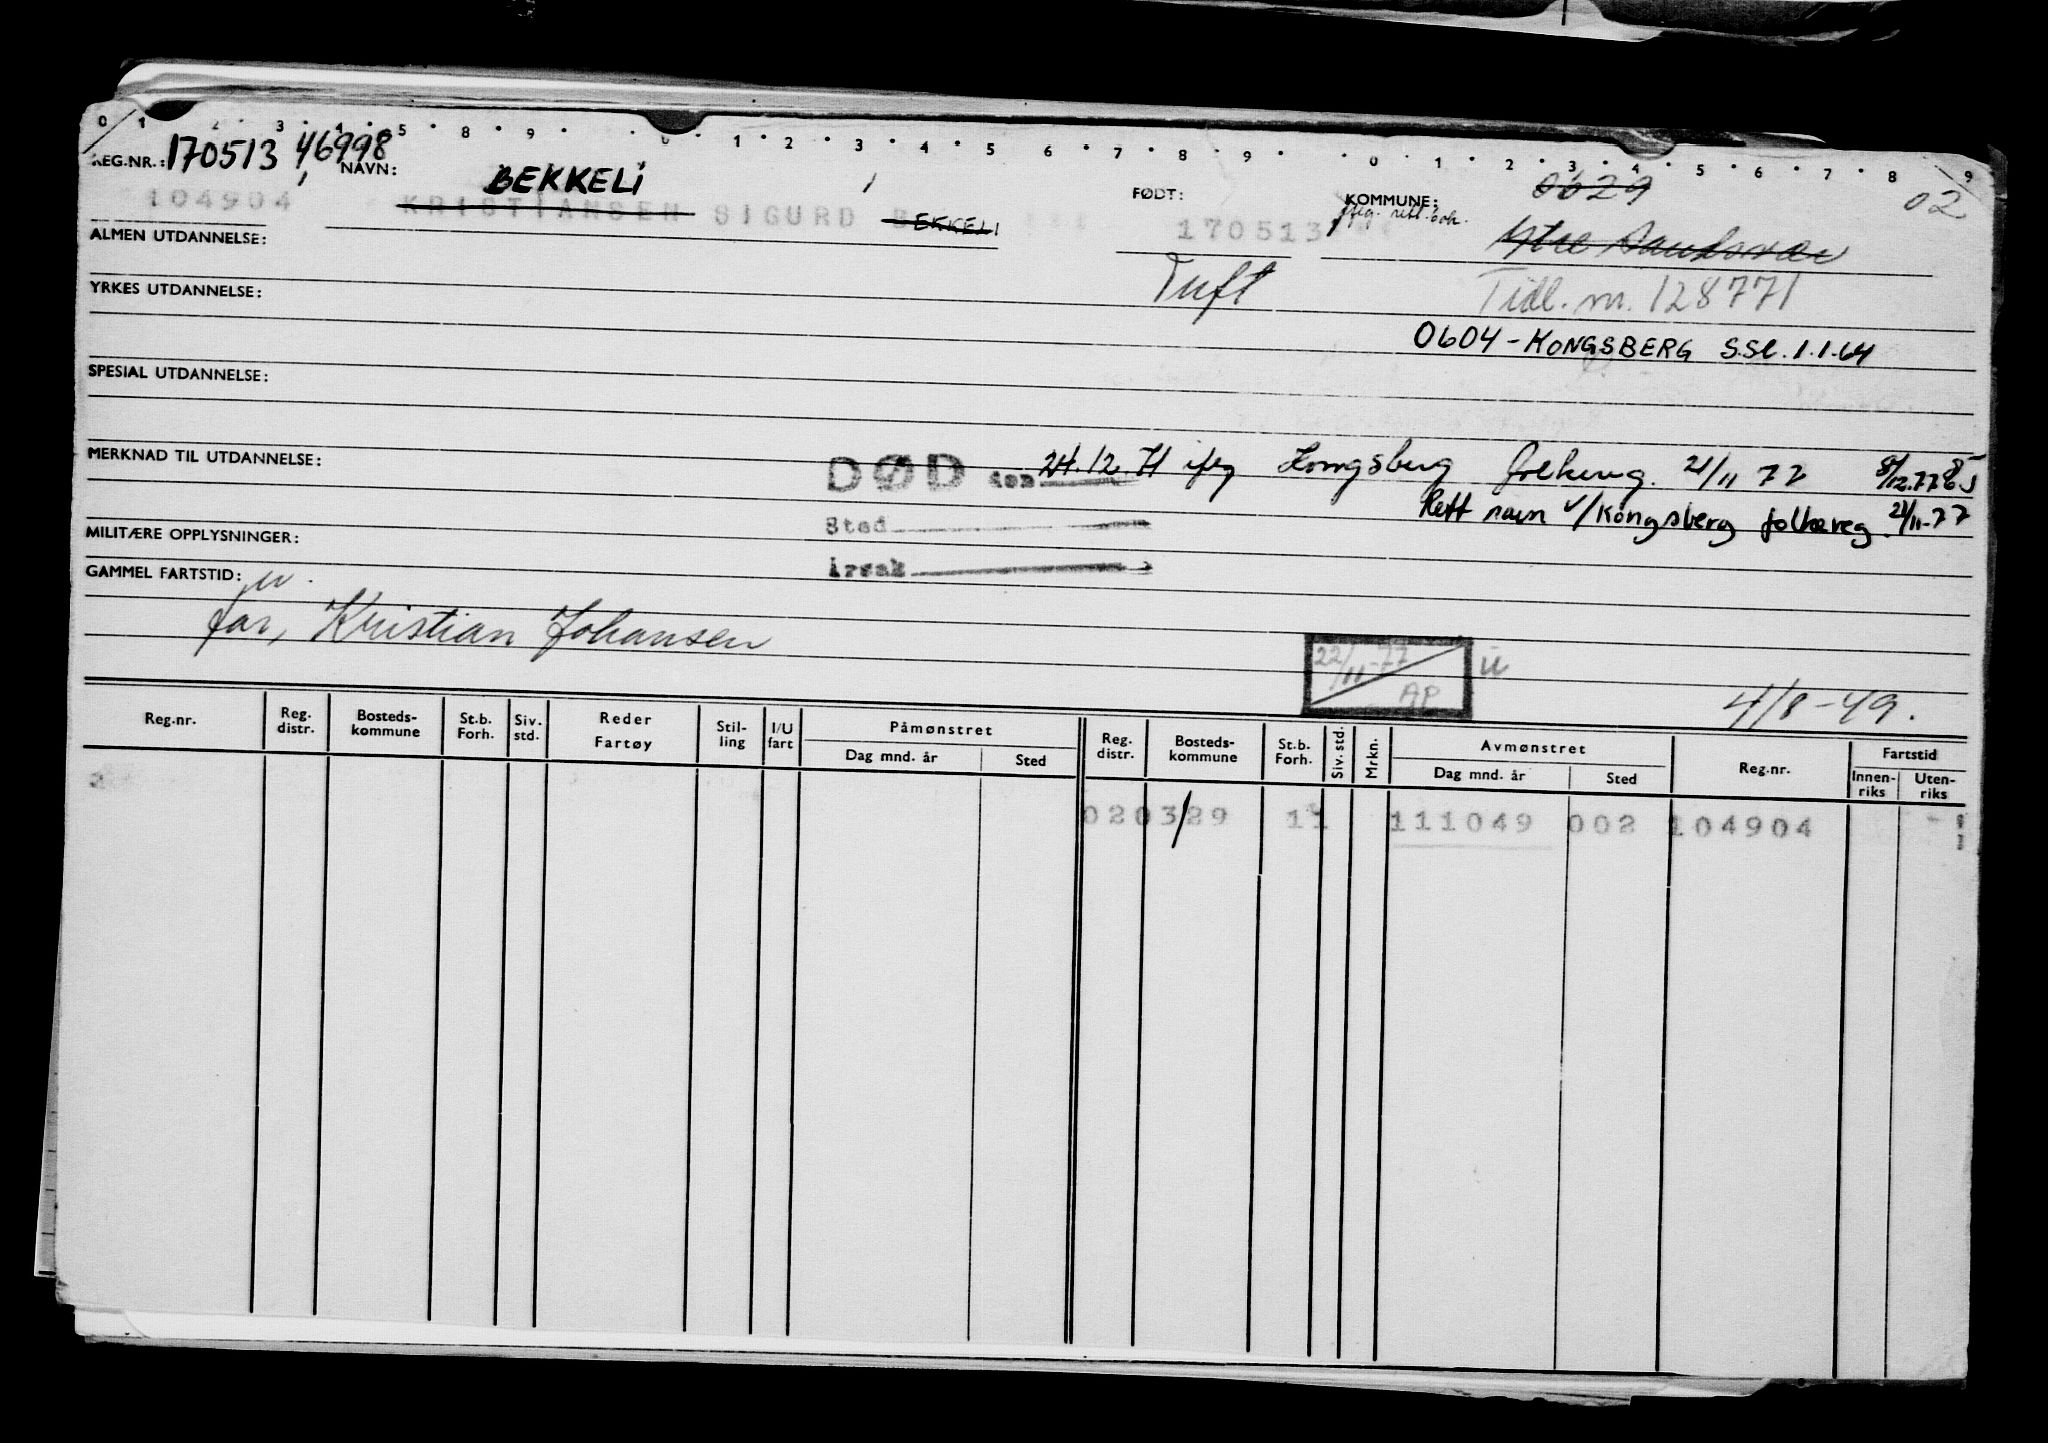 0 1 2 3 4 5 8 9 0 1 2 3 4 5 6 7 8 9 0 1 2 3 4 5 6 7 8 9
REG.NR.: 170513 46998 NAVN: BEKKELI, FØDT: KOMMUNE: 0629 02
104904 KRISTIANSEN SIGURD BEKKELI 170513 Ytre Sandsvær
ALMEN UTDANNELSE: Tuft Tidl. nr. 128771
YRKES UTDANNELSE:
0604 - KONGSBERG S.Sl. 1.1-64
SPESIAL UTDANNELSE:
MERKNAD TIL UTDANNELSE: DØD den 24.12.71 ifлg Kongsberg folkereg. 21/11 77 8/12.77
Sted Rett navn v/Kongsberg folkereg. 21/11-77
MILITÆRE OPPLYSNINGER:
Årsak
GAMMEL FARTSTID:
far, Kristian Johansen
22/11-77 AP
4/8-49.
Reg.nr. Reg. distr. Bosteds-kommune St.b. Forh. Siv. std. Reder Fartøy Stil-ling I/U fart Påmønstret Dag mnd. år Sted Reg. distr. Bosteds-kommune St.b. Forh. Siv. std. Mrkn. Avmønstret Dag mnd. år Sted Reg.nr. Fartstid Innen-riks Uten-riks
2 020329 11 111049 002 104904